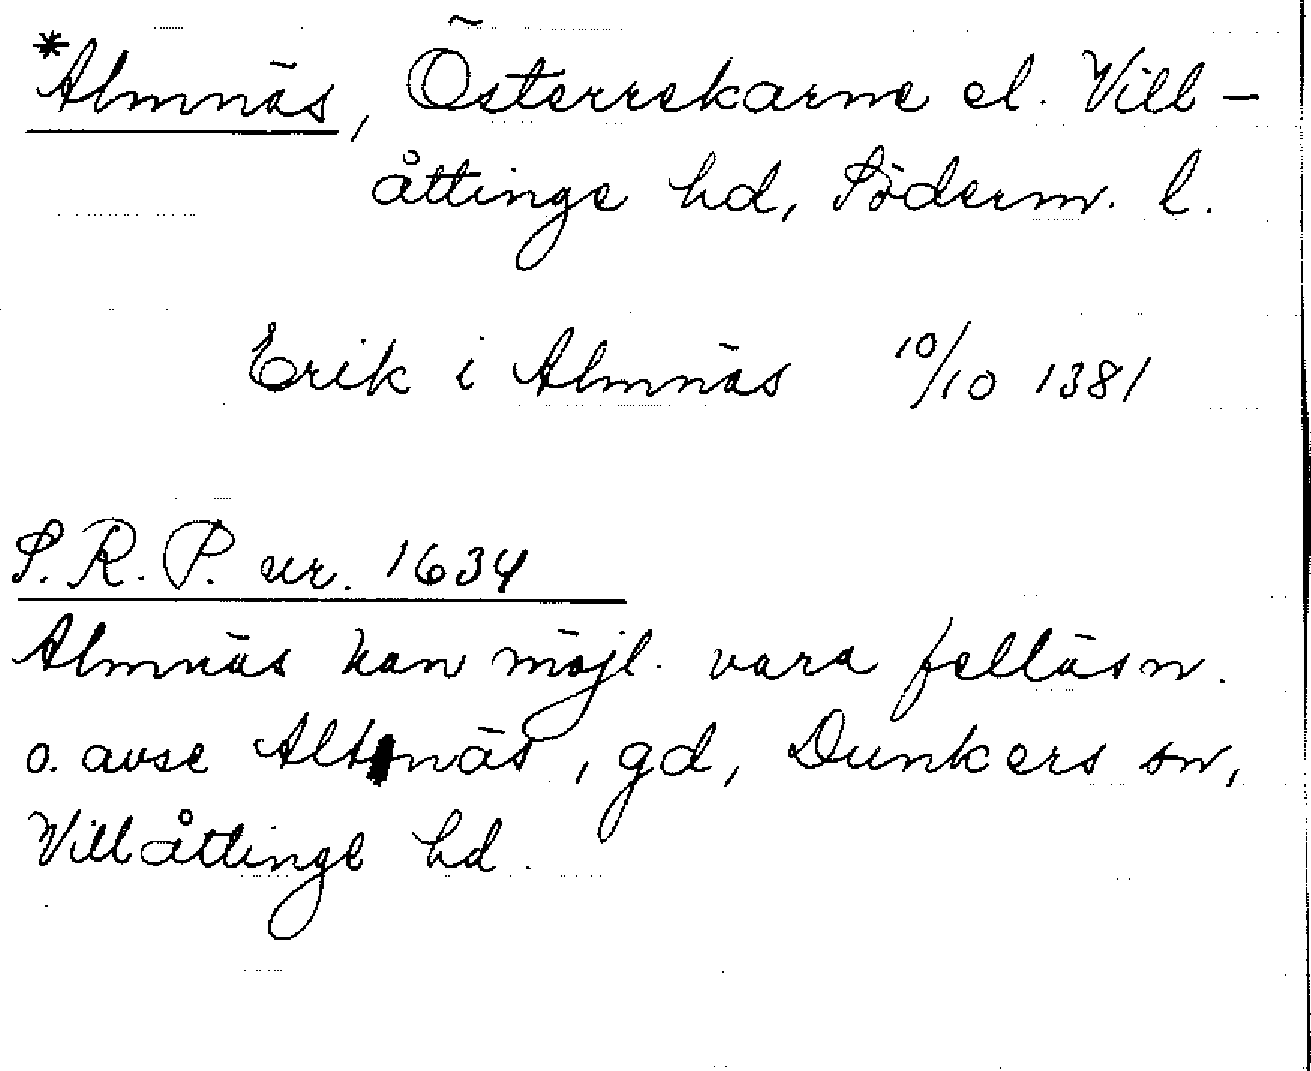 *Almnäs, Österrekarne el. Vill-
åttinge hd, Söderm. l.
Erik i Almnäs 10/10 1381
S.R.P. nr. 1634
Almnäs kan möjl. vara felläsn.
o. avse Altnäs, gd, Dunkers sn,
Villåttinge hd.